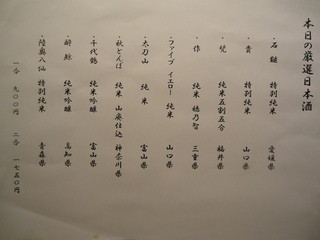 本日の厳選日本酒
・石鎚 特別純米 愛媛県
・貴 特別純米 山口県
・梵 純米五割五分 福井県
・作 純米 穂乃智 三重県
・ファイブ イエロー 純米 山口県
・太刀山 純米 富山県
・秋とんぼ 純米 山廃仕込 神奈川県
・千代鶴 純米吟醸 富山県
・酔鯨 純米吟醸 高知県
・陸奥八仙 特別純米 青森県
一合 九〇〇円 二合 一七五〇円